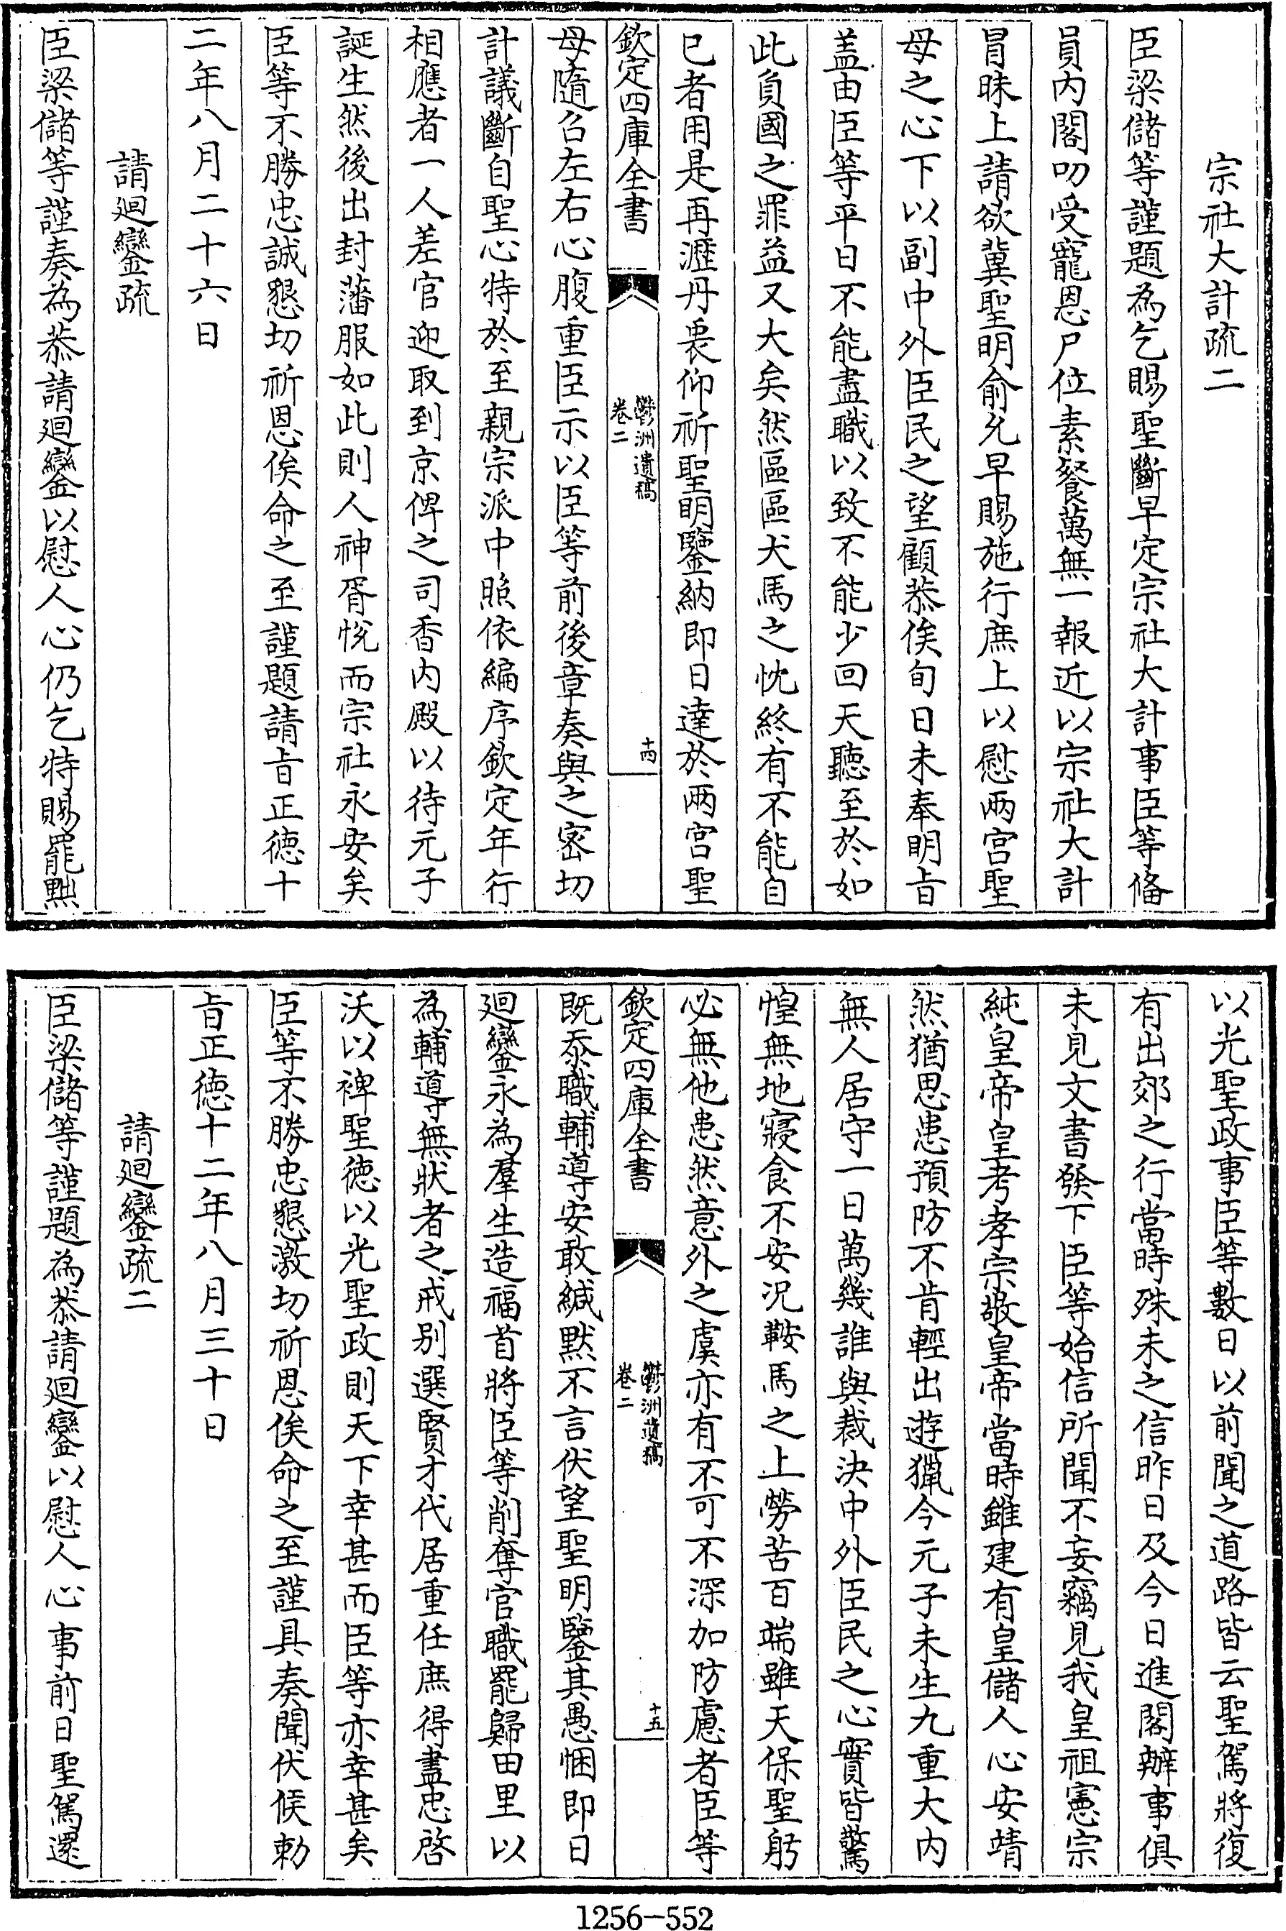 宗社大計疏二
臣梁儲等謹題為乞賜聖斷早定宗社大計事臣等偹
員内閣叨受寵恩尸位素餐萬無一報近以宗社大計
冒昧上請欲冀聖明俞允早賜施行庶上以慰兩宫聖
母之心下以副中外臣民之望顧恭俟旬日未奉明㫖
盖由臣等平日不能盡職以致不能少回天聽至於如
此負國之罪益又大矣然區區犬馬之忱終有不能自
已者用是再瀝丹衷仰祈聖明鑒納即日達於兩宫聖
欽定四庫全書
鬱洲遺稿
卷二
十四
母隨召左右心腹重臣示以臣等前後章奏與之密切
計議斷自聖心特於至親宗派中照依編序欽定年行
相應者一人差官迎取到京俾之司香内殿以待元子
誕生然後出封藩服如此則人神胥悦而宗社永安矣
臣等不勝忠誠懇切祈恩俟命之至謹題請㫖正徳十
二年八月二十六日
請迴鑾疏
臣梁儲等謹奏為恭請迴鑾以慰人心仍乞特賜罷黜
以光聖政事臣等數日以前聞之道路皆云聖駕將復
有出郊之行當時殊未之信昨日及今日進閣辦事俱
未見文書發下臣等始信所聞不妄竊見我皇祖憲宗
純皇帝皇考孝宗敬皇帝當時雖建有皇儲人心安靖
然猶思患預防不肯輕出遊獵今元子未生九重大内
無人居守一日萬幾誰與裁決中外臣民之心實皆驚
惶無地寢食不安況鞍馬之上勞苦百端雖天保聖躬
必無他患然意外之虞亦有不可不深加防慮者臣等
欽定四庫全書
鬱洲遺稿
卷二
十五
既忝職輔導安敢緘默不言伏望聖明鑒其愚悃即日
迴鑾永為羣生造福首將臣等削奪官職罷歸田里以
為輔導無狀者之戒别選賢才代居重任庶得盡忠啓
沃以裨聖徳以光聖政則天下幸甚而臣等亦幸甚矣
臣等不勝忠懇激切祈恩俟命之至謹具奏聞伏候勅
㫖正徳十二年八月三十日
請迴鑾疏二
臣梁儲等謹題為恭請迴鑾以慰人心事前日聖駕還
1256-552